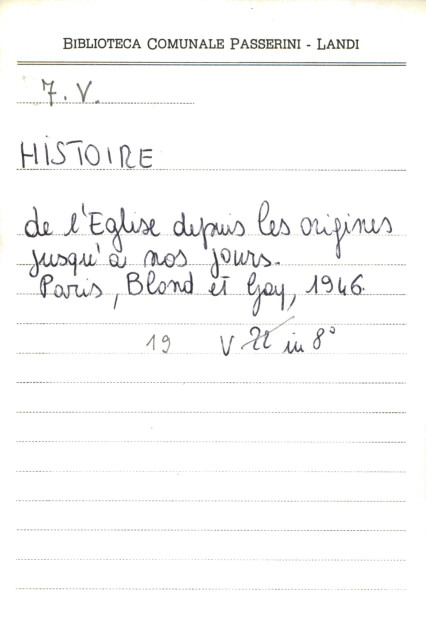 BIBLIOTECA COMUNALE PASSERINI - LANDI
7. V.
HISTOIRE
de l'Eglise depuis les origines
jusqu'à nos jours.
Paris, Bloud et Gay, 1946.
19 V in 8°